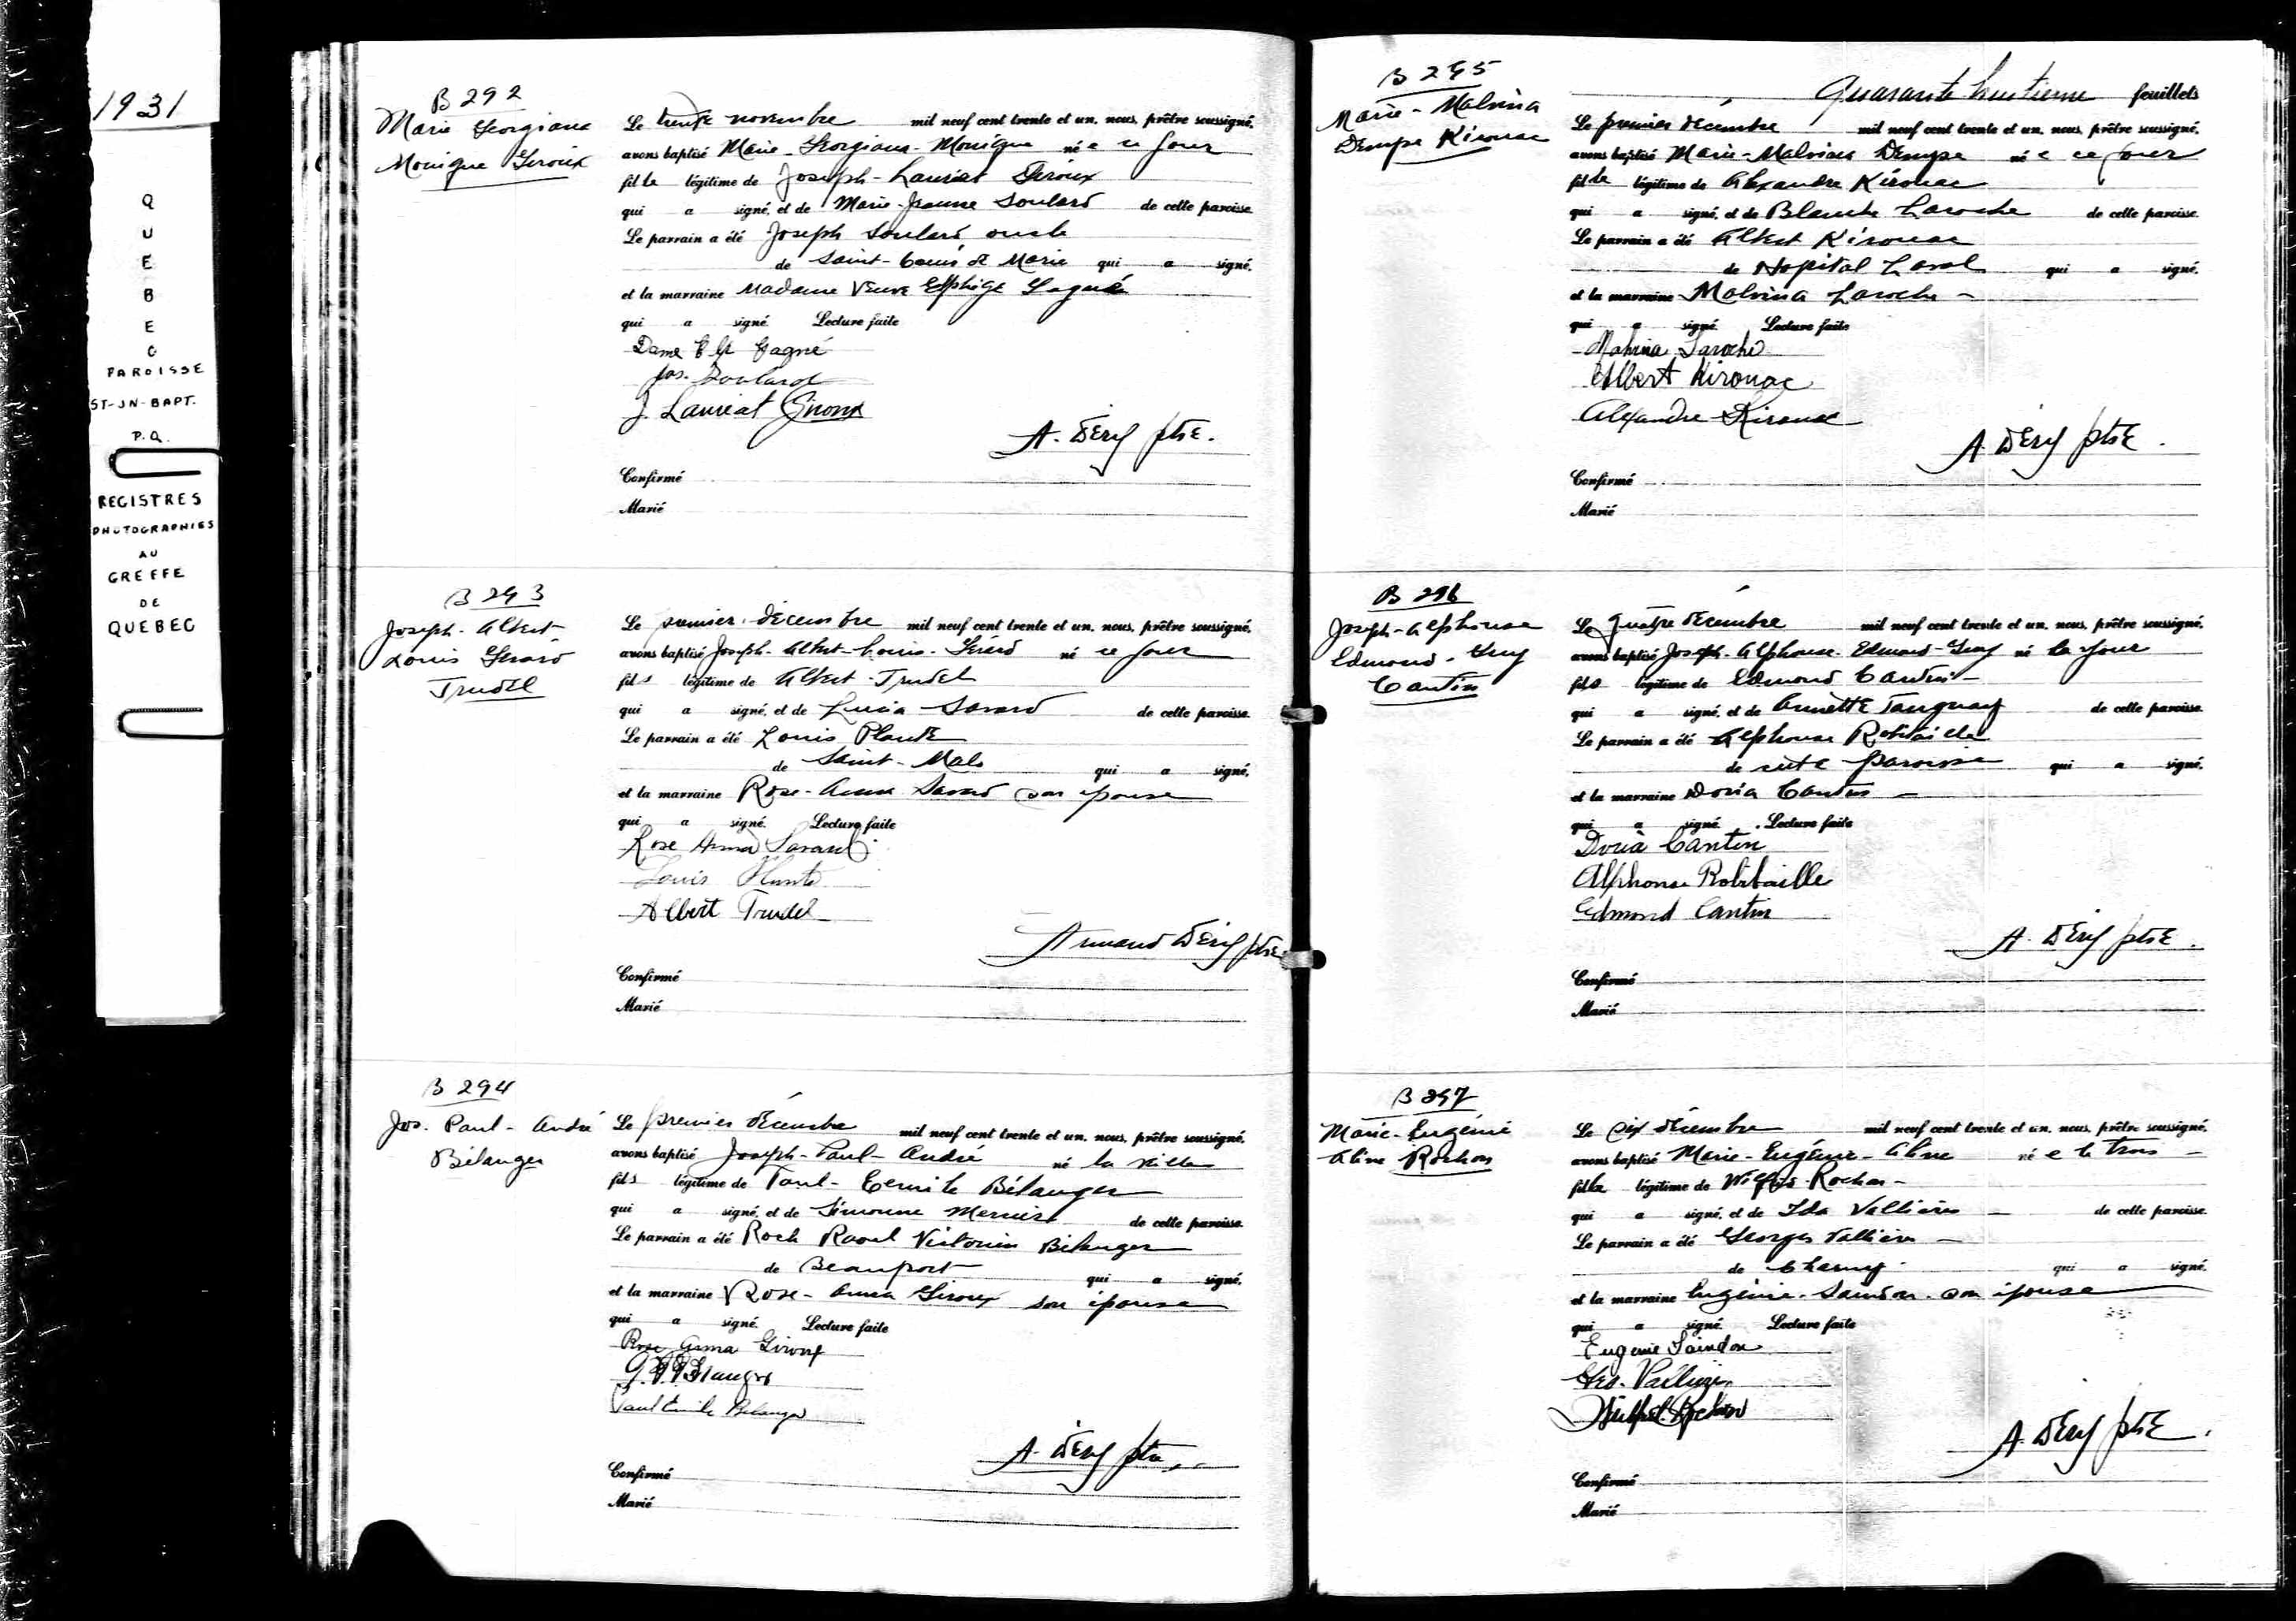 1931
QUEBEC
PAROISSE
ST-JN-BAPT.
P.Q.
REGISTRES
PHOTOGRAPHIES
AU
GREFFE
DE
QUEBEC
B 292
Marie Georgiana
Monique Giroux
Le trente novembre mil neuf cent trente et un, nous, prêtre soussigné,
avons baptisé Marie-Georgiana-Monique née ce jour
fille légitime de Joseph-Lauréat Giroux
qui a signé, et de Marie-Jeanne Soulard de cette paroisse.
Le parrain a été Joseph Soulard oncle
de Saint- de Marie qui a signé,
et la marraine Madame Veuve Gagné
qui a signé. Lecture faite
Dame Gagné
Jos. Soulard
J. Lauréat Giroux
A. Déry ptre.
Confirmé
Marié
B 293
Joseph-Albert-
Louis Gérard
Trudel
Le premier décembre mil neuf cent trente et un, nous, prêtre soussigné,
avons baptisé Joseph-Albert-Louis-Gérard né ce jour
fils légitime de Albert Trudel
qui a signé, et de Lucia Savard de cette paroisse.
Le parrain a été Louis Plante
de Saint-Malo qui a signé,
et la marraine Rose-Anna Savard son épouse
qui a signé. Lecture faite
Rose Anna Savard
Louis Plante
Albert Trudel
Armand Déry ptre
Confirmé
Marié
B 294
Jos. Paul-André
Bélanger
Le premier décembre mil neuf cent trente et un, nous, prêtre soussigné,
avons baptisé Joseph-Paul-André né la veille
fils légitime de Paul-Emile Bélanger
qui a signé, et de Simonne Mercier de cette paroisse.
Le parrain a été Roch Raoul Victorin Bélanger
de Beauport qui a signé,
et la marraine Rose-Anna Giroux son épouse
qui a signé. Lecture faite
Rose Anna Giroux
Paul Emile Belanger
A. Déry ptre
Confirmé
Marié
Quarante huitieme feuillets
B 295
Marie-Malvina
Dempe Kirouac
Le premier décembre mil neuf cent trente et un, nous, prêtre soussigné,
avons baptisé Marie-Malvina Dempe née ce jour
fille légitime de Alexandre Kirouac
qui a signé, et de Blanche Laroche de cette paroisse.
Le parrain a été Albert Kirouac
de Hopital Laval qui a signé,
et la marraine Malvina Laroche -
qui a signé. Lecture faite
Malvina Laroche
Albert Kirouac
Alexandre Kirouac
A. Déry ptre.
Confirmé
Marié
B 296
Joseph-Alphonse
Edmond-Guy
Cantin
Le quatre décembre mil neuf cent trente et un, nous, prêtre soussigné,
avons baptisé Joseph-Alphonse-Edmond-Guy né ce jour
fils légitime de Edmond Cantin -
qui a signé, et de Annette Tanguay de cette paroisse.
Le parrain a été Alphonse Robitaille
de cette paroisse qui a signé,
et la marraine Doria Cantin -
qui a signé. Lecture faite
Doria Cantin
Alphonse Robitaille
Edmond Cantin
A. Déry ptre.
Confirmé
Marié
B 297
Marie-Eugénie
Aline Rochon
Le six décembre mil neuf cent trente et un, nous, prêtre soussigné,
avons baptisé Marie-Eugénie-Aline née le trois -
fille légitime de Rochon -
qui a signé, et de Ida Vallières - de cette paroisse.
Le parrain a été Georges Vallières -
de Charny qui a signé,
et la marraine Eugénie Saindon son épouse
qui a signé. Lecture faite
Eugenie Saindon
Geo. Vallières
Rochon
A. Déry ptre.
Confirmé
Marié